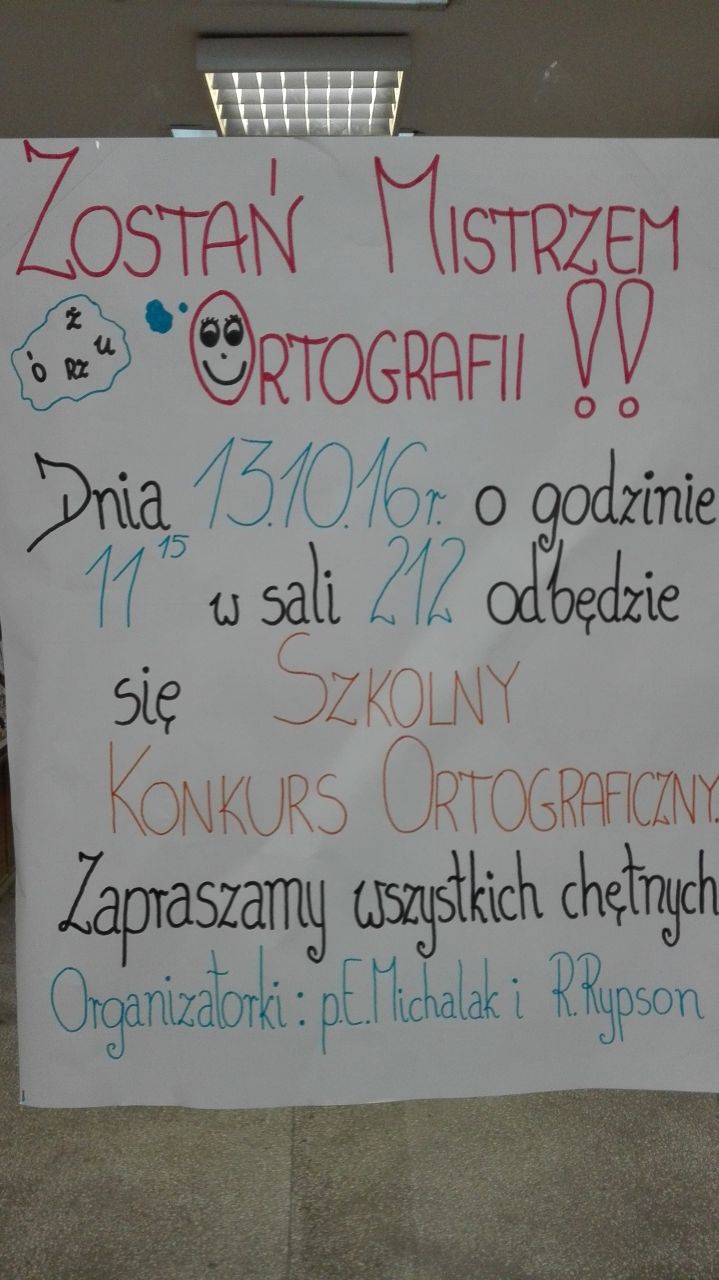 ZOSTAŃ MISTRZEM
ż
ó RZ u
ORTOGRAFII !!
Dnia 13.10.16r. o godzinie
11 15 w sali 212 odbędzie
się SZKOLNY
KONKURS ORTOGRAFICZNY.
Zapraszamy wszystkich chętnych
Organizatorki: p.E.Michalak i R.Rypson